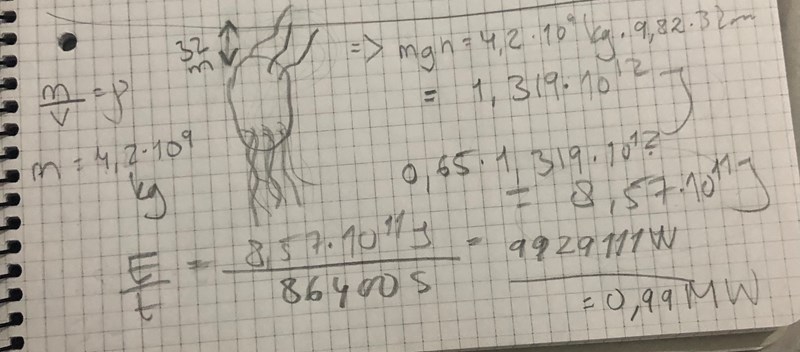 32 m
=> mgh = 4,2·10⁹ kg·9,82·32m
= 1,319·10¹² J
m/V = ρ
m = 4,2·10⁹ kg
0,65·1,319·10¹²
= 8,57·10¹¹ J
E/t = 8,57·10¹¹ J / 86400 s = 9929111 W
= 0,99 MW